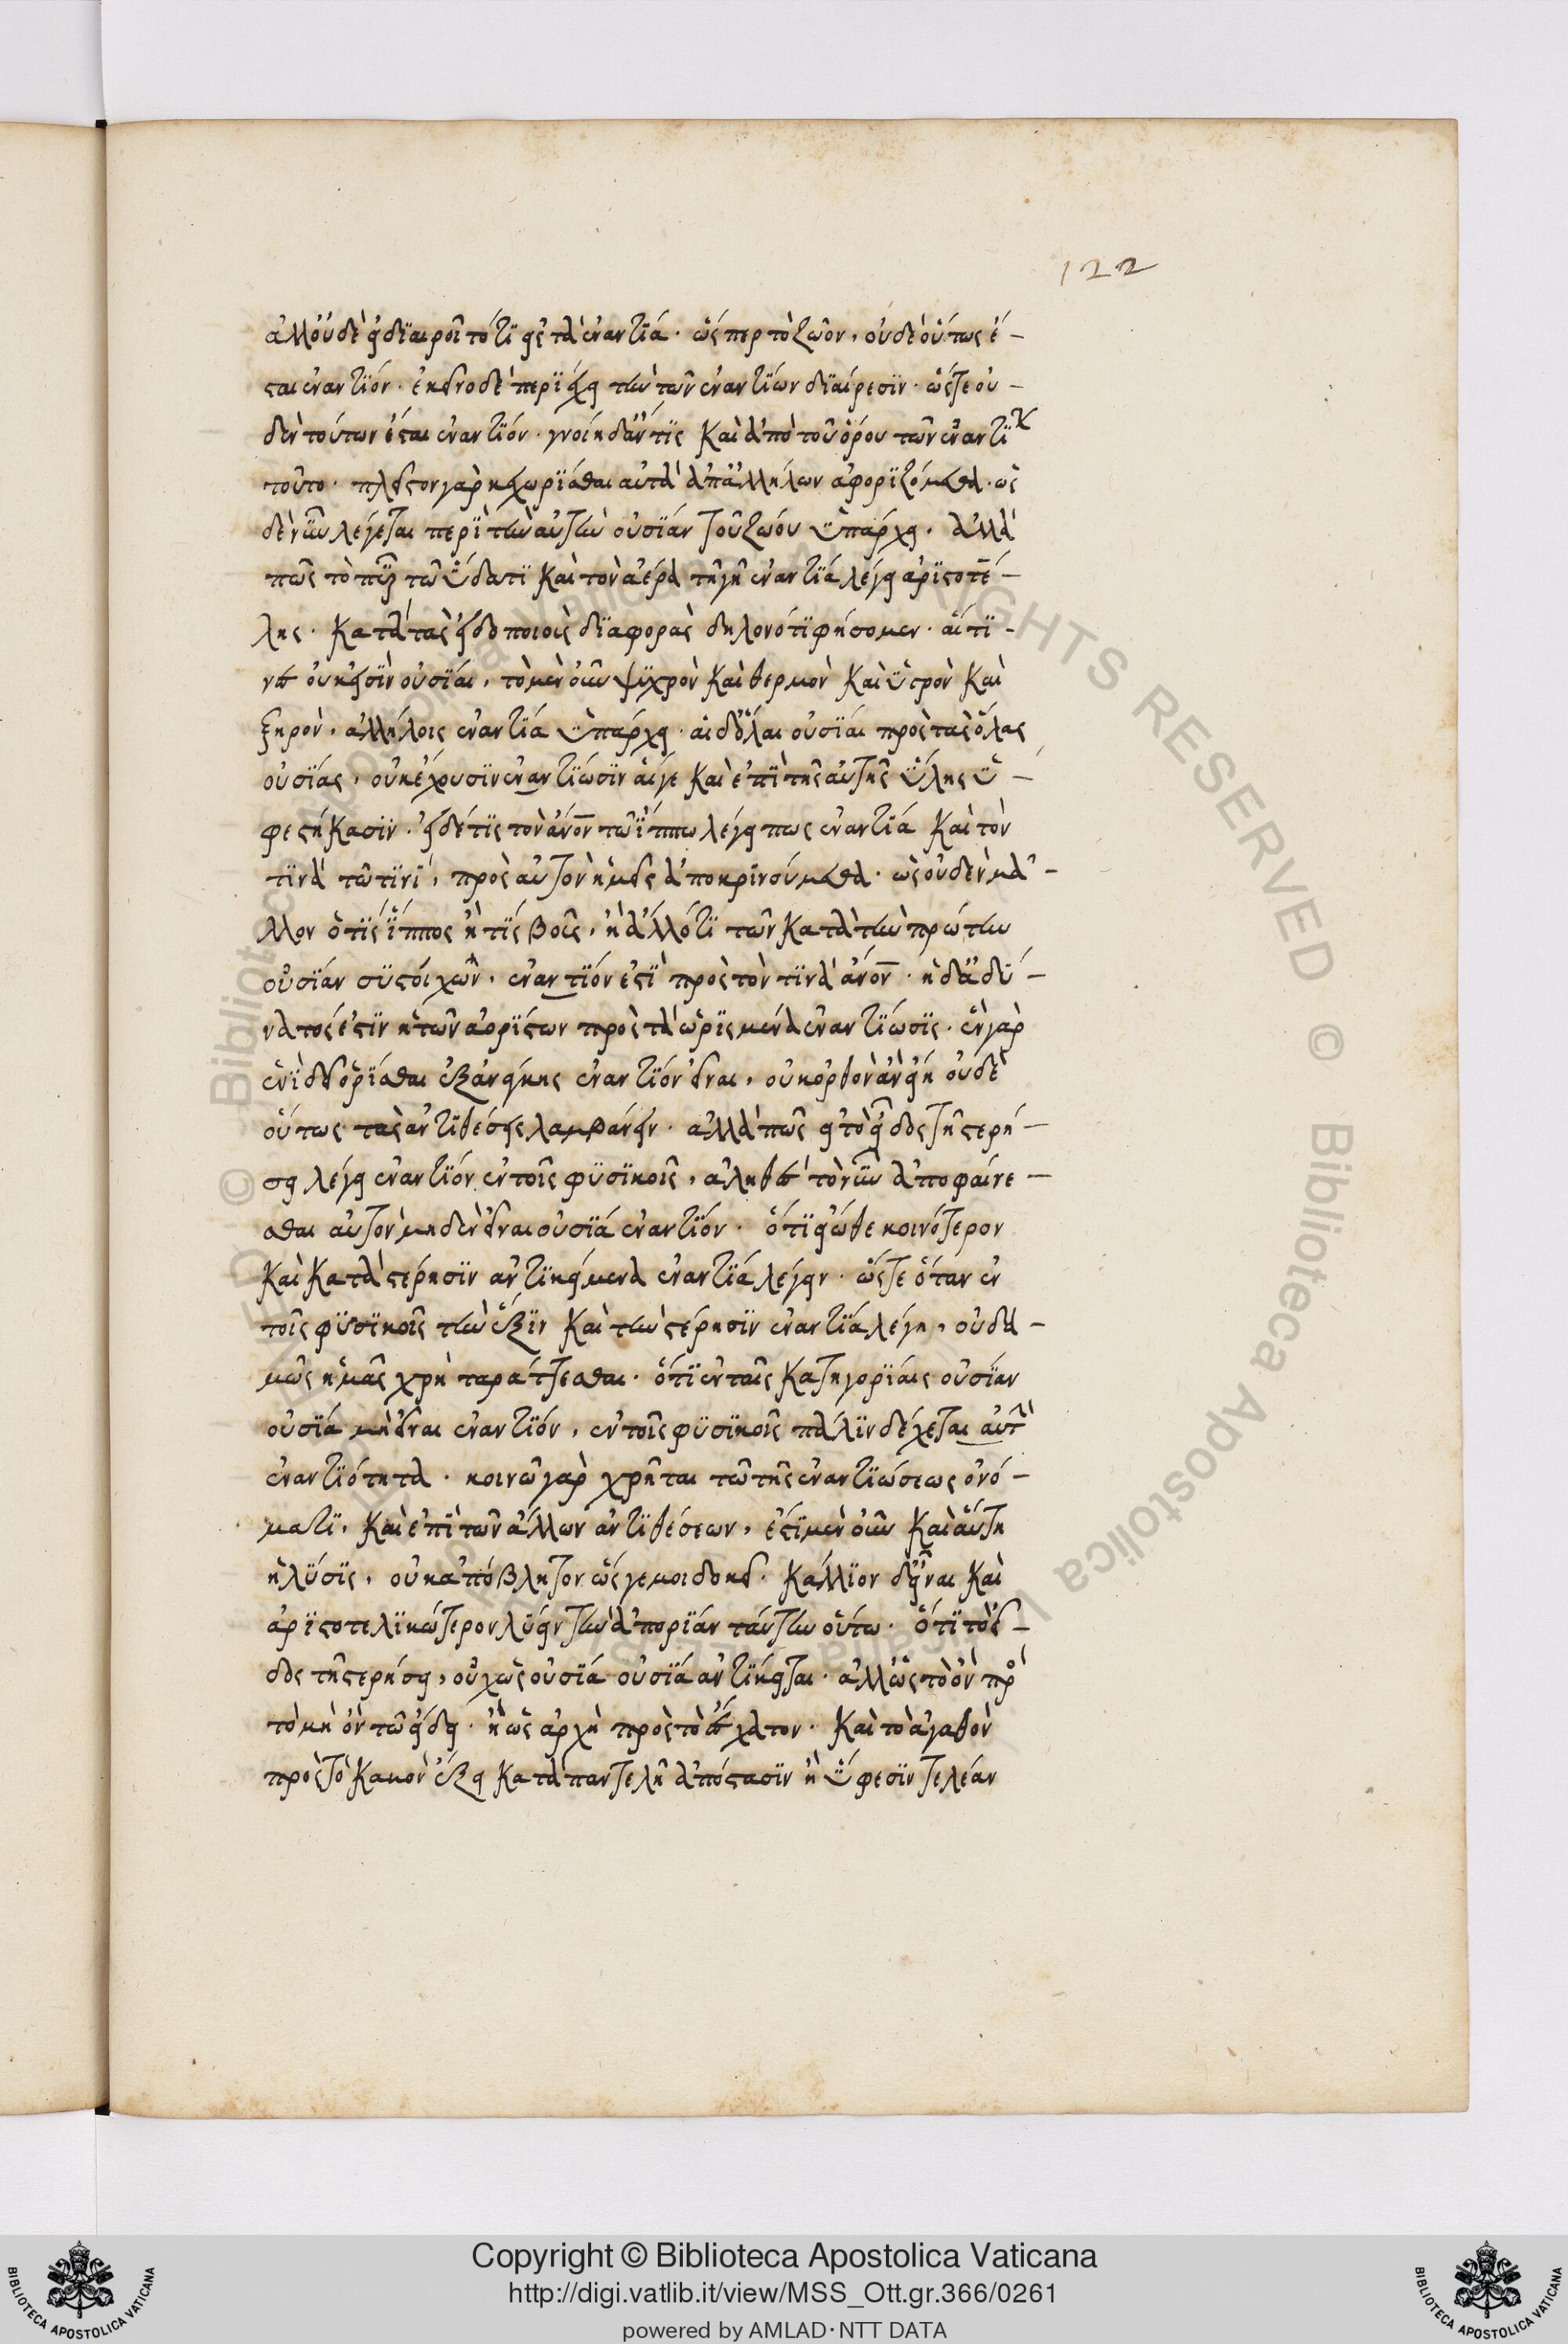 122
ἀλλ' οὐδὲ εἰ διαιροῖτό τι εἰς τὰ ἐναντία. ὥσπερ τὸ ζῶον, οὐδὲ οὕτως ἔ-
σται ἐναντίον. ἐκεῖνο δὲ περιέχει τὴν τῶν ἐναντίων διαίρεσιν. ὥστε οὐ-
δὲν τούτων ἔσται ἐναντίον. γνοίη δ' ἄν τις καὶ ἀπὸ τοῦ ὅρου τῶν ἐναντί
τοῦτο. πλεῖστον γὰρ κεχωρίσθαι αὐτὰ ἀπ' ἀλλήλων ἀφοριζόμεθα. ὡς
δὲ νῦν λέγεται περὶ τὴν αὐτὴν οὐσίαν τοῦ ζώου ὑπάρχει. ἀλλὰ
πῶς τὸ πῦρ τῶ ὕδατι καὶ τὸν ἀέρα τῆ γῆ ἐναντία λέγει ἀριστοτέ-
λης. κατὰ τὰς εἰδοποιοὺς διαφορὰς δηλονότι φήσομεν. αἵτι-
νες οὐκ εἰσὶν οὐσίαι, τὸ μὲν οὖν ψυχρὸν καὶ θερμὸν καὶ ὑγρὸν καὶ
ξηρὸν, ἀλλήλοις ἐναντία ὑπάρχει. αἱ δὲ ὅλαι οὐσίαι πρὸς τὰς ὅλας
οὐσίας, οὐκ ἔχουσιν ἐναντίωσιν αἵ γε καὶ ἐπὶ τῆς αὐτῆς ὕλης ὑ-
φεστήκασιν. εἰ δέ τις τὸν ἄνον τῶ ἵππω λέγει πως ἐναντία καὶ τὸν
τινὰ τῶ τινί, πρὸς αὐτὸν ἡμεῖς ἀποκρινούμεθα. ὡς οὐδὲν μᾶ-
λλον ὅ τις ἵππος ἤ τις βοῦς, ἢ ἄλλό τι τῶν κατὰ τὴν πρώτην
οὐσίαν συστοίχων, ἐναντίον ἐστὶ πρὸς τὸν τινὰ ἄνον. ἢ δ' ἀδύ-
νατός ἐστιν ἡ τῶν ἀορίστων πρὸς τὰ ὡρισμένα ἐναντίωσις. ἓν γὰρ
ἑνὶ δεῖ ὁρίσθαι ἐξ ἀνάγκης ἐναντίον εἶναι, οὐκ ὀρθὸν ἂν εἴη οὐδὲ
οὕτως τὰς ἀντιθέσεις λαμβάνειν. ἀλλὰ πῶς εἰ τὸ εἶδος τῆ στερή-
σει λέγει ἐναντίον ἐν τοῖς φυσικοῖς, ἀληθὲς τὸ νῦν ἀποφαίνε-
σθαι αὐτὸν μηδὲν εἶναι οὐσία ἐναντίον. ὅτι εἴωθε κοινότερον
καὶ κατὰ στέρησιν ἀντικείμενα ἐναντία λέγειν. ὥστε ὅταν ἐν
τοῖς φυσικοῖς τὴν ἕξιν καὶ τὴν στέρησιν ἐναντία λέγη, οὐδα-
μῶς ἡμᾶς χρὴ ταράττεσθαι. ὅτι ἐν ταῖς κατηγορίαις οὐσίαν
οὐσία μὴ εἶναι ἐναντίον, ἐν τοῖς φυσικοῖς πάλιν δέχεται αὐτ
ἐναντιότητα. κοινῶ γὰρ χρῆται τῶ τῆς ἐναντιώσεως ὀνό-
ματι, καὶ ἐπὶ τῶν ἄλλων ἀντιθέσεων, ἔστι μὲν οὖν καὶ αὕτη
ἡ λύσις, οὐκ ἀπόβλητον ὥς γέ μοι δοκεῖ. κάλλιον δ' εἶναι καὶ
ἀριστοτελικώτερον λύειν τὴν ἀπορίαν ταύτην οὕτω. ὅτι τὸ εἶ-
δος τῆ στερήσει, οὐχ ὡς οὐσία οὐσία ἀντίκειται. ἀλλ' ὡς τὸ ὂν πρὸ
τὸ μὴ ὂν τῶ εἴδει. ἢ ὡς ἀρχὴ πρὸς τὸ ἔσχατον. καὶ τὸ ἀγαθὸν
πρὸς τὸ κακὸν ἕξει κατὰ παντελῆ ἀπόστασιν ἢ ὕφεσιν τελέαν
Copyright © Biblioteca Apostolica Vaticana
http://digi.vatlib.it/view/MSS_Ott.gr.366/0261
powered by AMLAD·NTT DATA